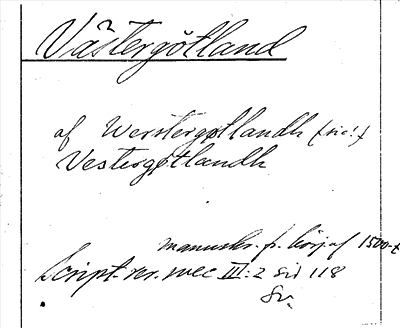 Västergötland
af Werstergøtlandh (sic!)
Vestergøtlandh
manuskr. fr. börj af 1500-t
Script. rer. svec III:2 sid 118
Sv.